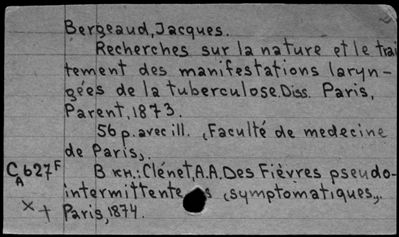 Bergeaud, Jacques.
Recherches sur la nature et le trai
tement des manifestations laryn-
gées de la tuberculose. Diss. Paris,
Parent, 1873.
56 p. avec ill. (Faculté de medecine
de Paris).
C A 627F В кн.: Clénet, A.A. Des Fièvres pseudo-
intermittentes (symptomatiques).
× + Paris, 1874.